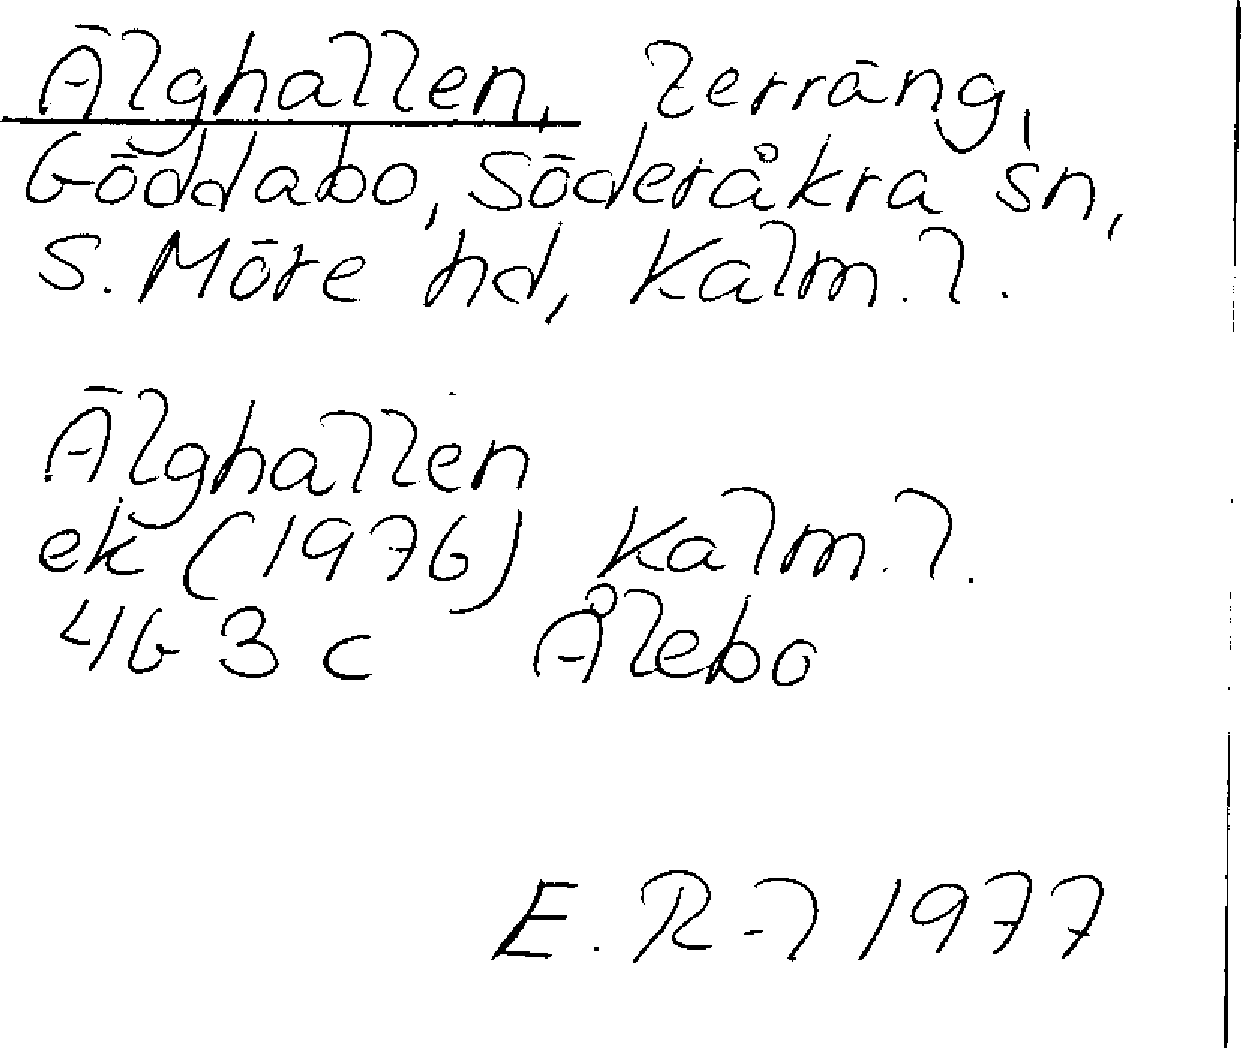 Älghallen, terräng,
Göddabo, Söderåkra sn,
S. Möre hd, Kalm. l.
Älghallen
ek (1976) Kalm. l.
4G 3c Ålebo
E. R-l 1977